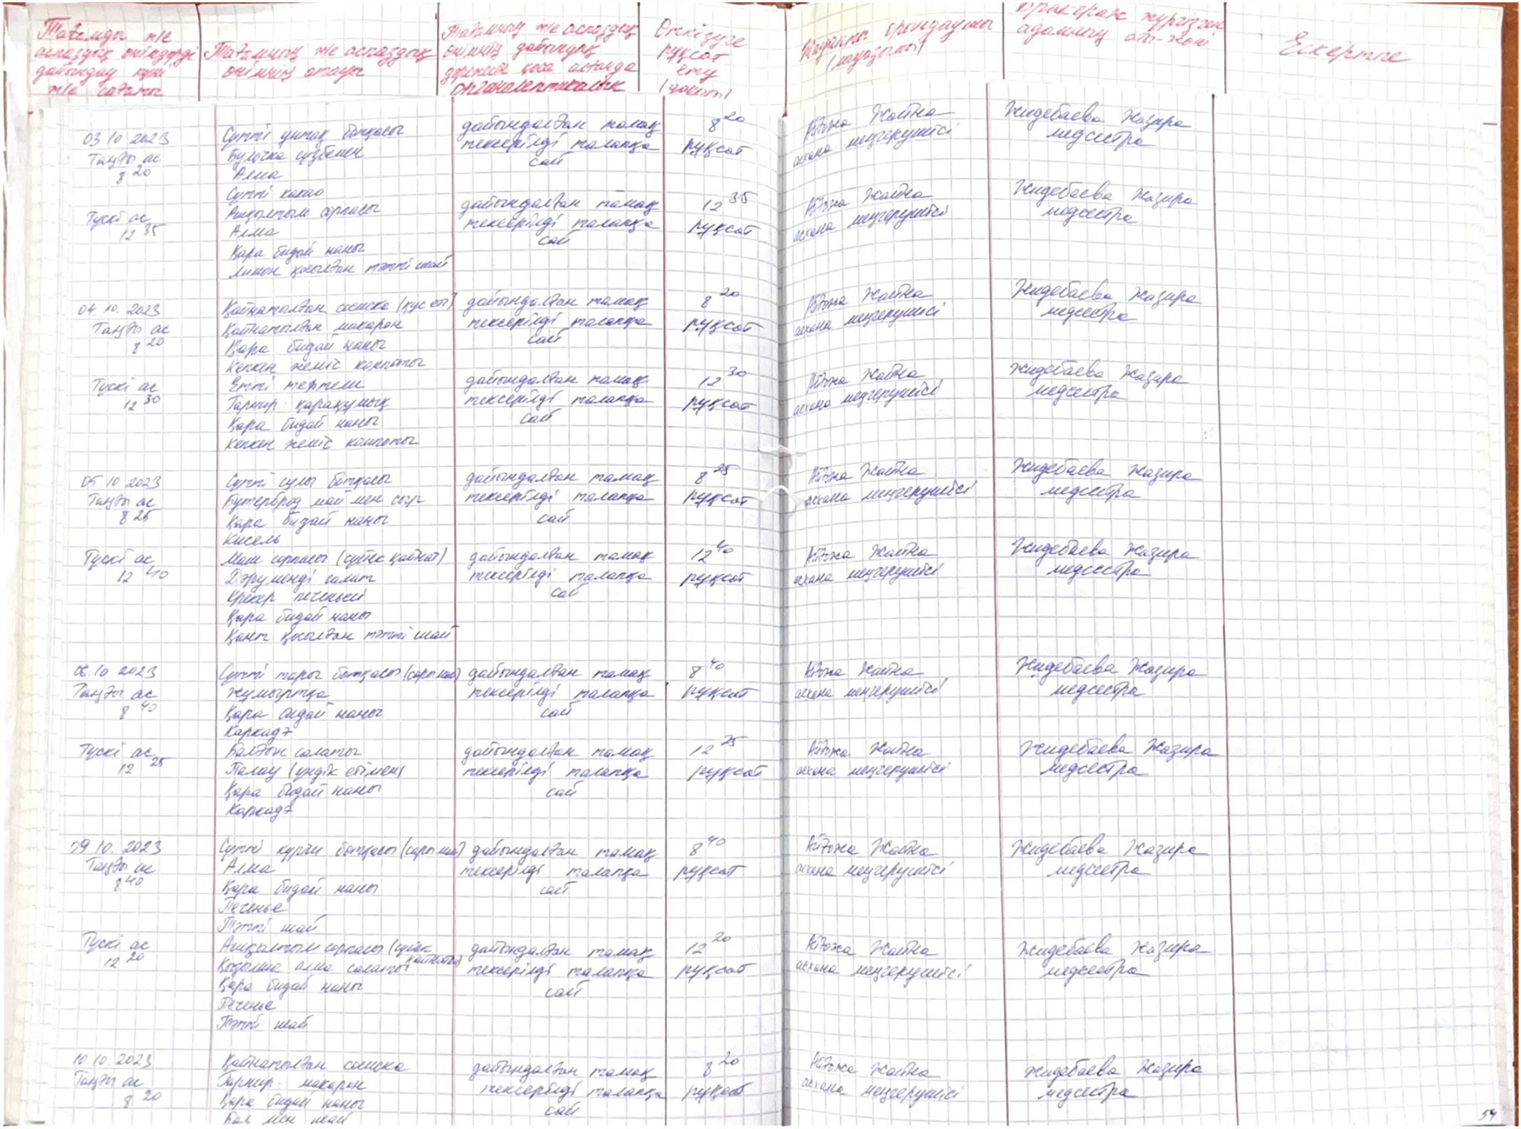 Тағамды ж/е
аспаздық өнімдерді
дайындау күні
ж/е сағаты
Тағамның ж/е аспаздық
өнімнің атауы
Тағамның ж/е аспаздық
өнімнің дайындық
дәрежесін қоса алғанда
органолептикалық
Өткізуге
рұқсат
ету
/уақыты/
Жауапты орындаушы
Бракераж жүргізген
адамның аты-жөні
Ескертпе
03 10 2023
Таңғы ас
8 20
Сүтті ұнтақ ботқасы
Булочка сүзбемен
Алма
Сүтті какао
дайындалған тамақ
тексерілді талапқа
сай
8 20
рұқсат
Жайна
асхана меңгерушісі
Жидебаева Жазира
медсестра
Түскі ас
12 35
Ашқылтым сорпасы
Алма
Қара бидай наны
Лимон қосылған тәтті шай
дайындалған тамақ
тексерілді талапқа
сай
12 35
рұқсат
Жайна
асхана меңгерушісі
Жидебаева Жазира
медсестра
04 10. 2023
Таңғы ас
8 20
Қайнатылған сосиска (құс еті)
Қайнатылған макарон
Қара бидай наны
Кепкен жеміс компоты
дайындалған тамақ
тексерілді талапқа
сай
8 20
рұқсат
Жайна
асхана меңгерушісі
Жидебаева Жазира
медсестра
Түскі ас
12 30
Етті тефтели
Гарнир қарақұмық
Қара бидай наны
Кепкен жеміс компоты
дайындалған тамақ
тексерілді талапқа
сай
12 30
рұқсат
Жайна
асхана меңгерушісі
Жидебаева Жазира
медсестра
05 10 2023
Таңғы ас
8 25
Сүтті сұлы ботқасы
Бутерброд май мен сыр
Қара бидай наны
Кисель
дайындалған тамақ
тексерілді талапқа
сай
8 25
рұқсат
Жайна
асхана меңгерушісі
Жидебаева Жазира
медсестра
Түскі ас
12 40
Маш сорпасы (сүйек қайнат)
Дәруменді салат
Крекер печеньесі
Қара бидай наны
Қант қосылған тәтті шай
дайындалған тамақ
тексерілді талапқа
сай
12 40
рұқсат
Жайна
асхана меңгерушісі
Жидебаева Жазира
медсестра
06.10 2023
Таңғы ас
8 40
Сүтті тары ботқасы (сары май)
Жұмыртқа
Қара бидай наны
Каркадэ
дайындалған тамақ
тексерілді талапқа
сай
8 40
рұқсат
Жайна
асхана меңгерушісі
Жидебаева Жазира
медсестра
Түскі ас
12 25
Балғын салаты
Палау (үндік етімен)
Қара бидай наны
Каркадэ
дайындалған тамақ
тексерілді талапқа
сай
12 25
рұқсат
Жайна
асхана меңгерушісі
Жидебаева Жазира
медсестра
09 10. 2023
Таңғы ас
8 40
Сүтті күріш ботқасы (сары май)
Алма
Қара бидай наны
Печенье
Тәтті шай
дайындалған тамақ
тексерілді талапқа
сай
8 40
рұқсат
Жайна
асхана меңгерушісі
Жидебаева Жазира
медсестра
Түскі ас
12 20
Ашқылтым сорпасы (сүйек
қайнатпа)
Қызылша алма салаты
Қара бидай наны
Печенье
Тәтті шай
дайындалған тамақ
тексерілді талапқа
сай
12 20
рұқсат
Жайна
асхана меңгерушісі
Жидебаева Жазира
медсестра
10 10. 2023
Таңғы ас
8 20
Қайнатылған сосиска
Гарнир макарон
Қара бидай наны
Бал мен шай
дайындалған тамақ
тексерілді талапқа
сай
8 20
рұқсат
Жайна
асхана меңгерушісі
Жидебаева Жазира
медсестра
54